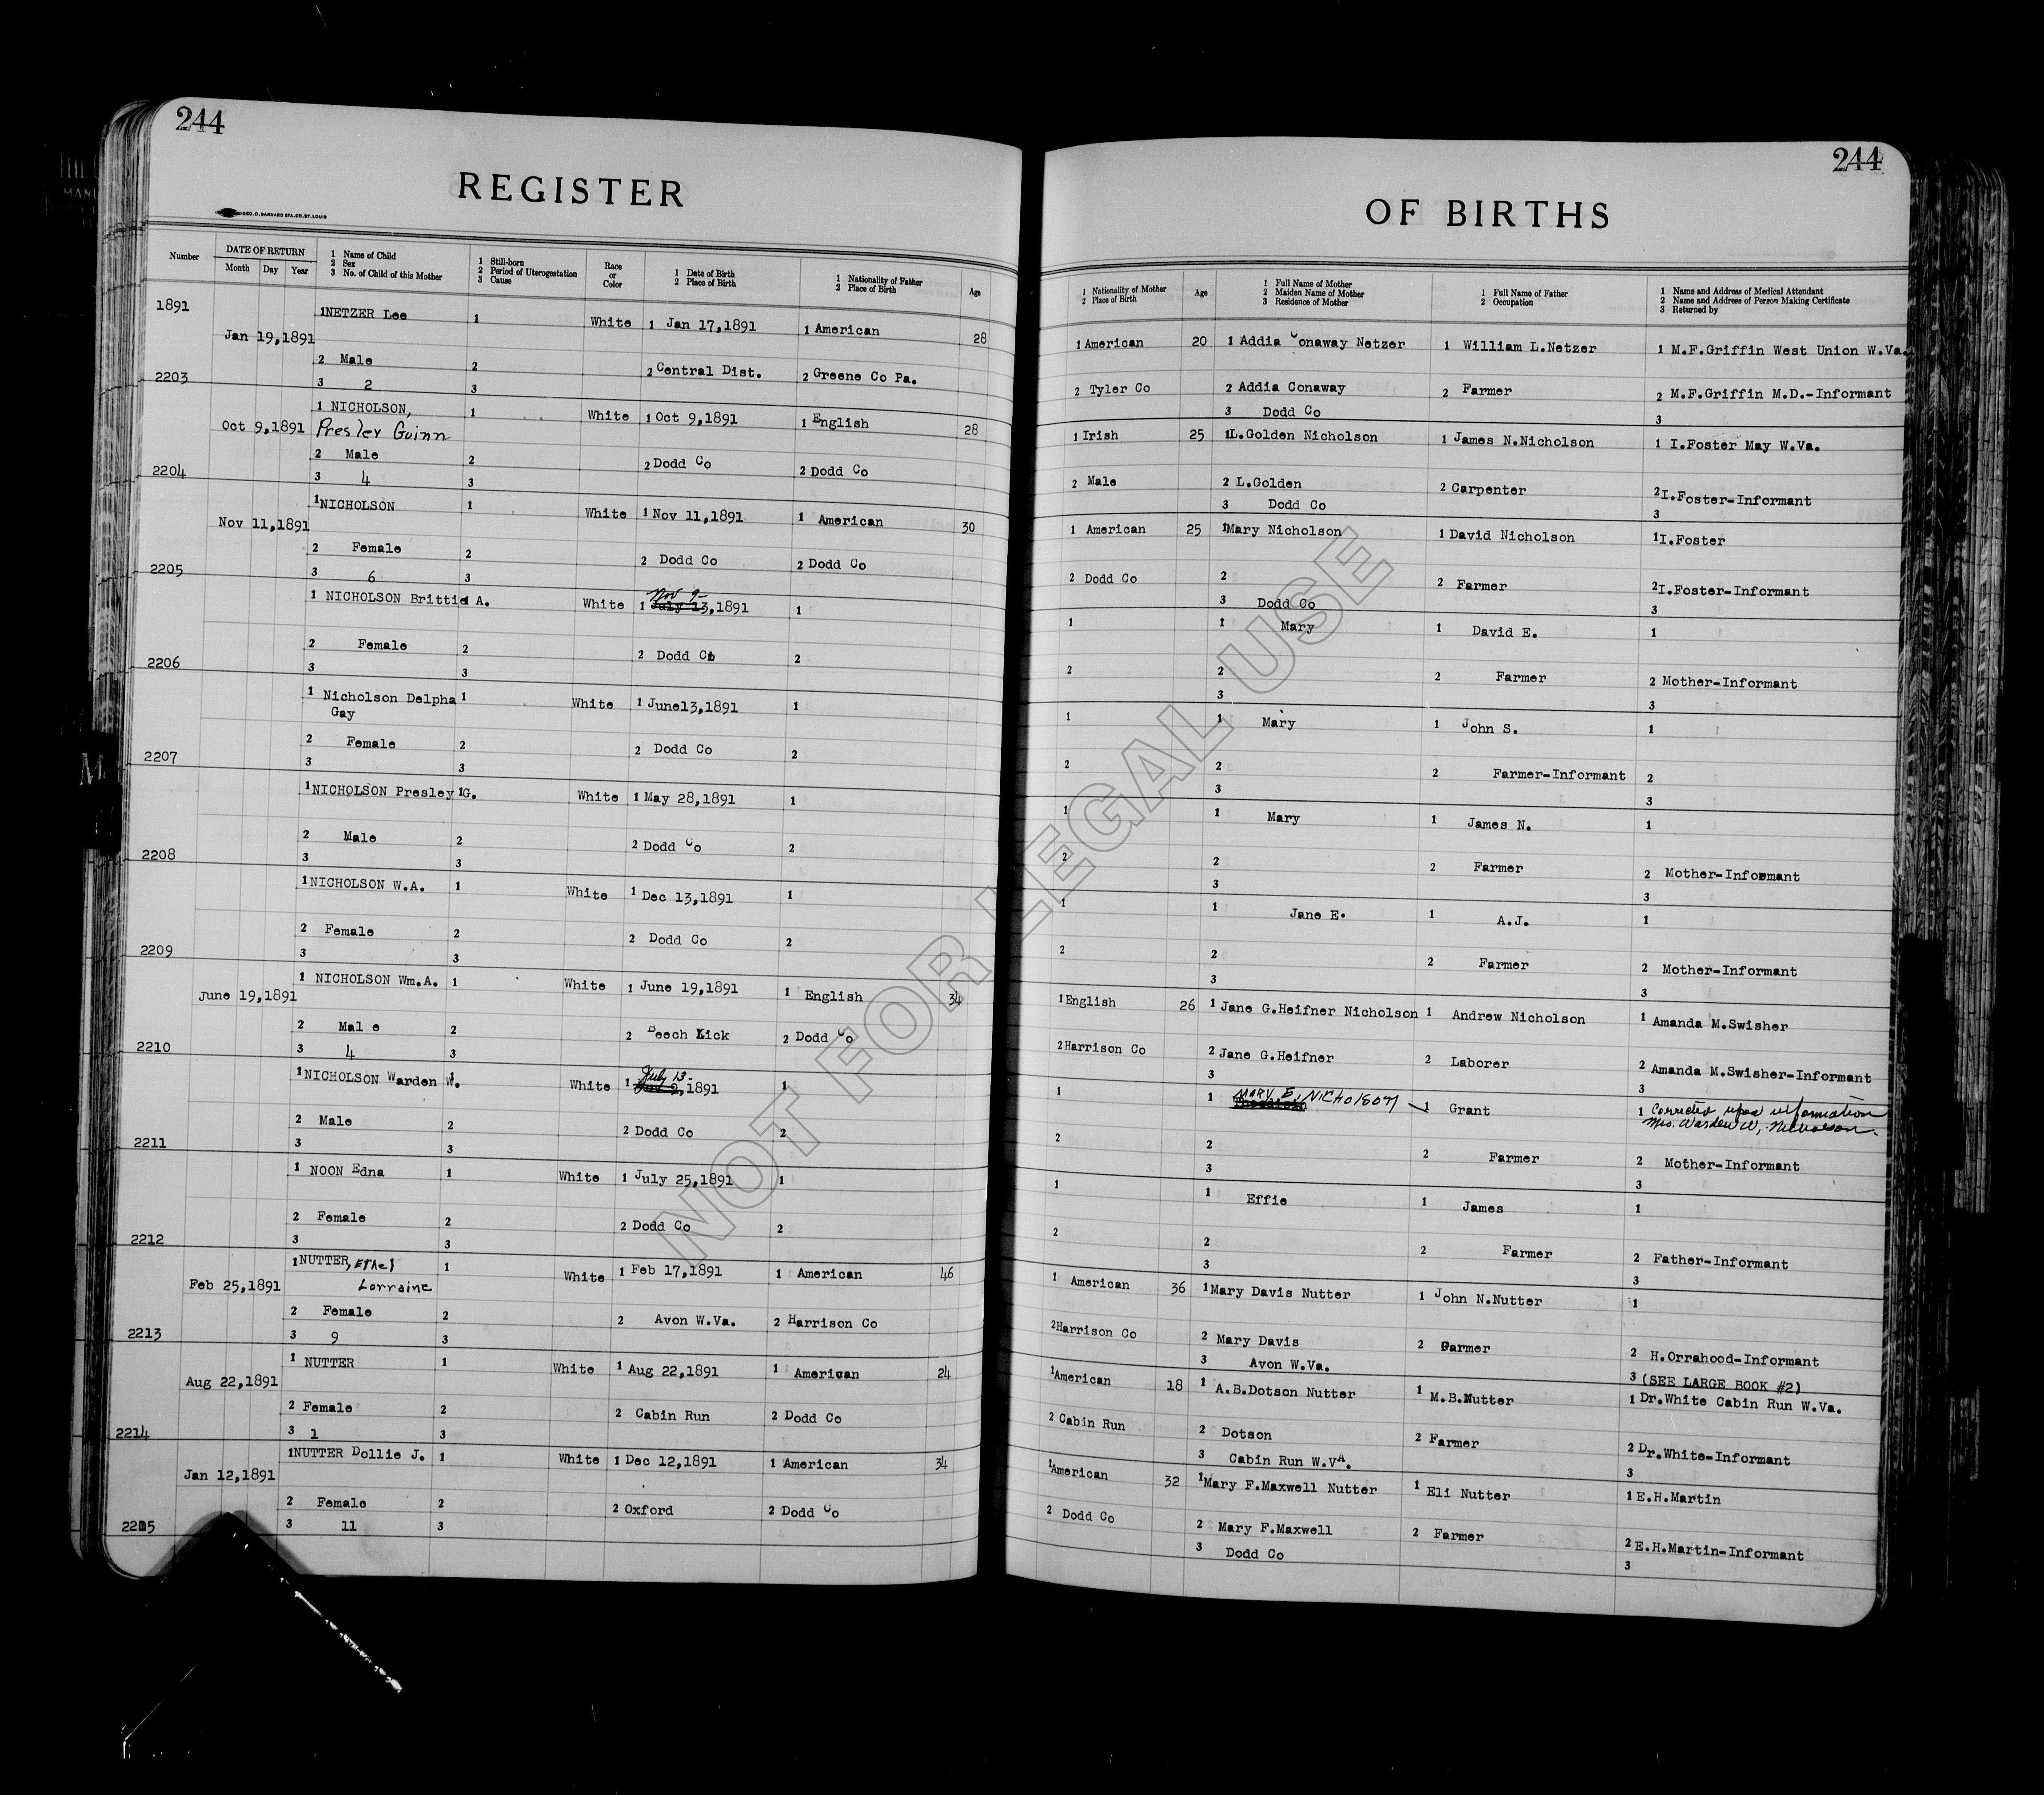 244
REGISTER
GEO. D. BARNARD STA. CO. ST. LOUIS
Number
DATE OF RETURN
Month Day Year
1 Name of Child
2 Sex
3 No. of Child of this Mother
1 Still-born
2 Period of Uterogestation
3 Cause
Race
or
Color
1 Date of Birth
2 Place of Birth
1 Nationality of Father
2 Place of Birth
Age
1891
1NETZER Lee 1 White 1 Jan 17,1891 1 American 28
Jan 19,1891
2 Male 2 2 Central Dist. 2 Greene Co Pa.
2203 3 2 3
1 NICHOLSON, 1 White 1 Oct 9,1891 1 English 28
Oct 9,1891 Presley Guinn
2 Male 2 2 Dodd Co 2 Dodd Co
2204 3 4 3
1NICHOLSON 1 White 1 Nov 11,1891 1 American 30
Nov 11,1891
2 Female 2 2 Dodd Co 2 Dodd Co
2205 3 6 3
Nov 9-
1 NICHOLSON Brittie A. White 1 July 13,1891 1
2 Female 2 2 Dodd Co 2
2206 3 3
1 Nicholson Delpha 1 White 1 June13,1891 1
Gay
2 Female 2 2 Dodd Co 2
2207 3 3
1NICHOLSON Presley 1G. White 1 May 28,1891 1
2 Male 2 2 Dodd Co 2
2208 3 3
1NICHOLSON W.A. 1 White 1 Dec 13,1891 1
2 Female 2 2 Dodd Co 2
2209 3 3
1 NICHOLSON Wm.A. 1 White 1 June 19,1891 1 English 34
June 19,1891
2 Mal e 2 2 Beech Lick 2 Dodd Co
2210 3 4 3
July 13-
1NICHOLSON Warden W. 1 White 1 2,1891 1
2 Male 2 2 Dodd Co 2
2211 3 3
1 NOON Edna 1 White 1 July 25,1891 1
2 Female 2 2 Dodd Co 2
2212 3 3
1NUTTER, Ethel 1 White 1 Feb 17,1891 1 American 46
Feb 25,1891 Lorraine
2 Female 2 2 Avon W.Va. 2 Harrison Co
2213 3 9 3
1 NUTTER 1 White 1 Aug 22,1891 1 American 24
Aug 22,1891
2 Female 2 2 Cabin Run 2 Dodd Co
2214 3 1 3
1NUTTER Dollie J. 1 White 1 Dec 12,1891 1 American 34
Jan 12,1891
2 Female 2 2 Oxford 2 Dodd Co
2215 3 11 3
244
OF BIRTHS
1 Nationality of Mother
2 Place of Birth
Age
1 Full Name of Mother
2 Maiden Name of Mother
3 Residence of Mother
1 Full Name of Father
2 Occupation
1 Name and Address of Medical Attendant
2 Name and Address of Person Making Certificate
3 Returned by
1 American 20 1 Addia Conaway Netzer 1 William L.Netzer 1 M.F.Griffin West Union W.Va.
2 Tyler Co 2 Addia Conaway 2 Farmer 2 M.F.Griffin M.D.-Informant
3 Dodd Co 3
1 Irish 25 1L.Golden Nicholson 1 James N.Nicholson 1 I.Foster May W.Va.
2 Male 2 L.Golden 2 Carpenter 2I.Foster-Informant
3 Dodd Co 3
1 American 25 1Mary Nicholson 1 David Nicholson 1I.Foster
2 Dodd Co 2 2 Farmer 2I.Foster-Informant
3 Dodd Co 3
1 1 Mary 1 David E. 1
2 2 2 Farmer 2 Mother-Informant
3 3
1 1 Mary 1 John S. 1
2 2 2 Farmer-Informant 2
3 3
1 1 Mary 1 James N. 1
2 2 2 Farmer 2 Mother-Informant
3 3
1 1 Jane E. 1 A.J. 1
2 2 2 Farmer 2 Mother-Informant
3 3
1English 26 1 Jane G.Heifner Nicholson 1 Andrew Nicholson 1 Amanda M.Swisher
2Harrison Co 2 Jane G.Heifner 2 Laborer 2 Amanda M.Swisher-Informant
3 3
1 1 MARY E, NICHOLSON 1 Grant 1 Corrected upon information
Mrs. Warden W, Nicholson.
2 2 2 Farmer 2 Mother-Informant
3 3
1 1 Effie 1 James 1
2 2 2 Farmer 2 Father-Informant
3 3
1 American 36 1Mary Davis Nutter 1 John N.Nutter 1
2Harrison Co 2 Mary Davis 2 Farmer 2 H.Orrahood-Informant
3 Avon W.Va. 3 (SEE LARGE BOOK #2)
1American 18 1 A.B.Dotson Nutter 1 M.B.Nutter 1 Dr.White Cabin Run W.Va.
2 Cabin Run 2 Dotson 2 Farmer 2 Dr.White-Informant
3 Cabin Run W.VA. 3
1American 32 1Mary F.Maxwell Nutter 1 Eli Nutter 1 E.H.Martin
2 Dodd Co 2 Mary F.Maxwell 2 Farmer 2 E.H.Martin-Informant
3 Dodd Co 3
NOT FOR LEGAL USE